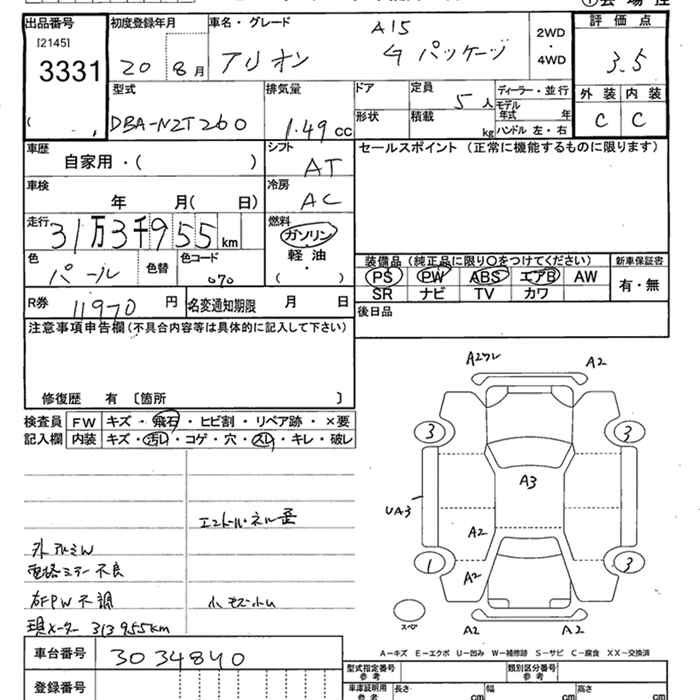 出品番号 初度登録年月 車名・グレード A15 2WD・4WD 評価点
[2145]
3331 20 8月 アリオン Gパッケージ 3.5
型式 排気量 ドア 定員 5人 ディーラー・並行 外装 内装
DBA-NZT260 1.49cc 形状 積載 kg モデル年式 年 ハンドル 左・右 C C
車歴 自家用・( ) シフト AT セールスポイント (正常に機能するものに限ります)
車検 年 月( 日) 冷房 AC
走行 31万3千955km 燃料 ガソリン
色 パール 色替 色コード 070 軽油 ( ・ )
装備品 (純正品に限り○をつけてください) 新車保証書
PS PW ABS エアB AW 有・無
SR ナビ TV カワ
R券 11970円 名変通知期限 月 日 後日品
注意事項申告欄(不具合内容等は具体的に記入して下さい)
修復歴 有 〔箇所 〕
検査員 FW キズ・飛石・ヒビ割・リペア跡・×要
記入欄 内装 キズ・汚レ・コゲ・穴・スレ・キレ・破レ
A2ワレ A2
3 3
A3
UA3
A2
1 A2 3
スペア A2 A2
エントパネル歪
外アルミW
電格ミラー不良
右FPW不調 小キズ・小凹
現メーター 313955km
A-キズ E-エクボ U-凹み W-補修跡 S-サビ C-腐食 XX-交換済
車台番号 3034840
登録番号
型式指定番号 参考 類別区分番号 参考
車庫証明用 参考 長さ cm 幅 cm 高さ cm